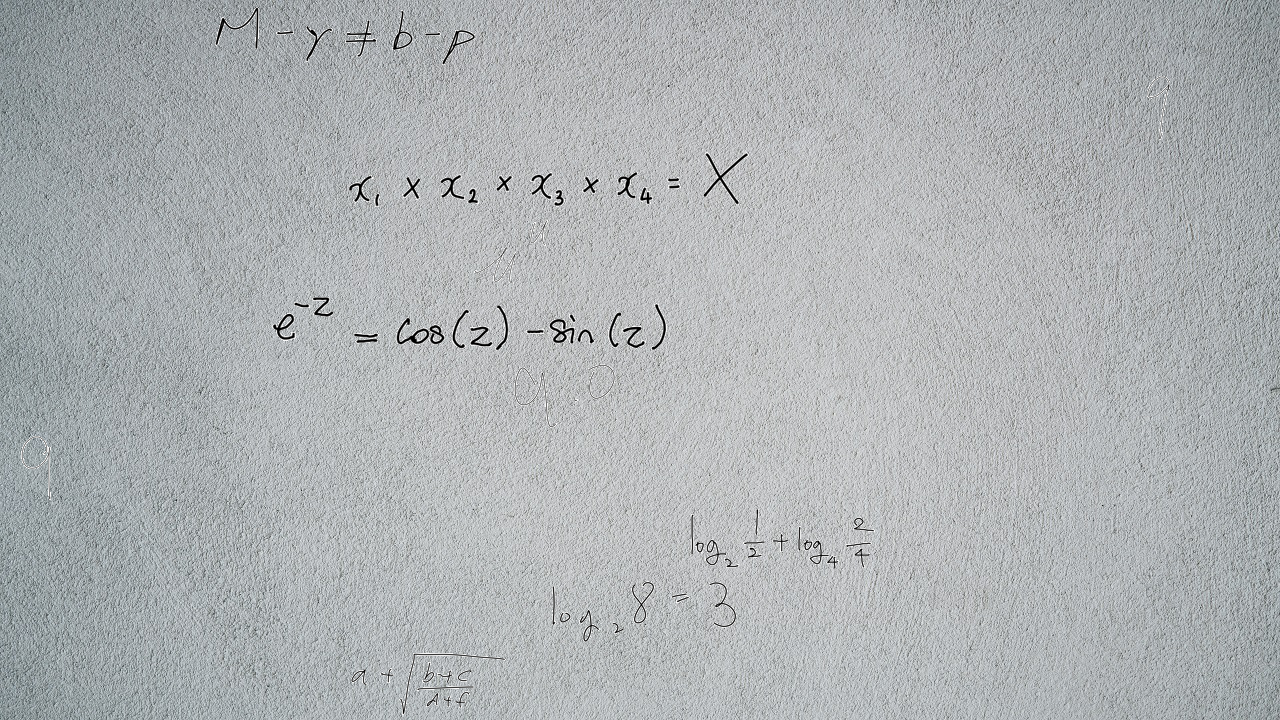 M - γ ≠ b - p
x₁ × x₂ × x₃ × x₄ = X
e⁻ᶻ = cos(z) - sin(z)
log₂ 1/2 + log₄ 2/4
log₂ 8 = 3
a + √((b+c)/(d+f))
9